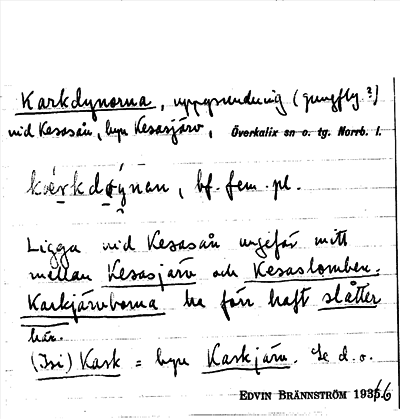 Karkdynorna, uppgrundning (gungfly?)
vid Kesasån, byn Kesasjärv, Överkalix sn o. tg. Norrb. l.
bf. fem. pl.
Ligga vid Kesasån ungefär mitt
mellan Kesasjärv och Kesaslomben.
Karkjärvborna ha förr haft slåtter
här.
(Isi) Kark = byn Karkjärv. Se d. o.
EDVIN BRÄNNSTRÖM 1936